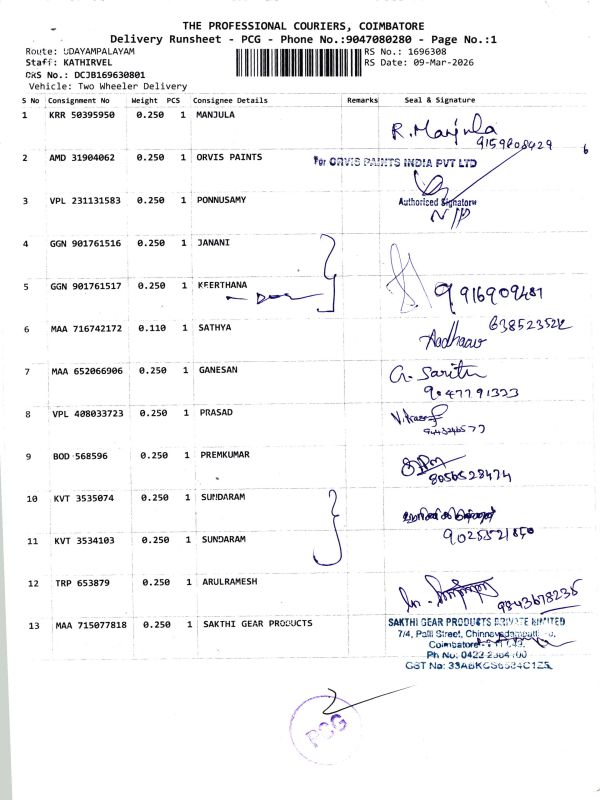 THE PROFESSIONAL COURIERS, COIMBATORE
Delivery Runsheet - PCG - Phone No.:9047080280 - Page No.:1
Route: UDAYAMPALAYAM
RS No.: 1696308
Staff: KATHIRVEL
RS Date: 09-Mar-2026
DRS No.: DCJB169630801
Vehicle: Two Wheeler Delivery
S No Consignment No Weight PCS Consignee Details Remarks Seal & Signature
1 KRR 50395950 0.250 1 MANJULA
R. Manjula
9159608429
2 AMD 31904062 0.250 1 ORVIS PAINTS
For ORVIS PAINTS INDIA PVT LTD
3 VPL 231131583 0.250 1 PONNUSAMY
Authorised Signatory
4 GGN 901761516 0.250 1 JANANI
5 GGN 901761517 0.250 1 KEERTHANA
9916909481
6 MAA 716742172 0.110 1 SATHYA
Aadhaav
7 MAA 652066906 0.250 1 GANESAN
G. Saritu
9047791323
8 VPL 408033723 0.250 1 PRASAD
9 BOD 568596 0.250 1 PREMKUMAR
8056528474
10 KVT 3535074 0.250 1 SUNDARAM
11 KVT 3534103 0.250 1 SUNDARAM
12 TRP 653879 0.250 1 ARULRAMESH
9843678235
13 MAA 715077818 0.250 1 SAKTHI GEAR PRODUCTS
SAKTHI GEAR PRODUCTS PRIVATE LIMITED
7/4, Palli Street,
Coimbatore
Ph No: 0422
GST No:
PCG